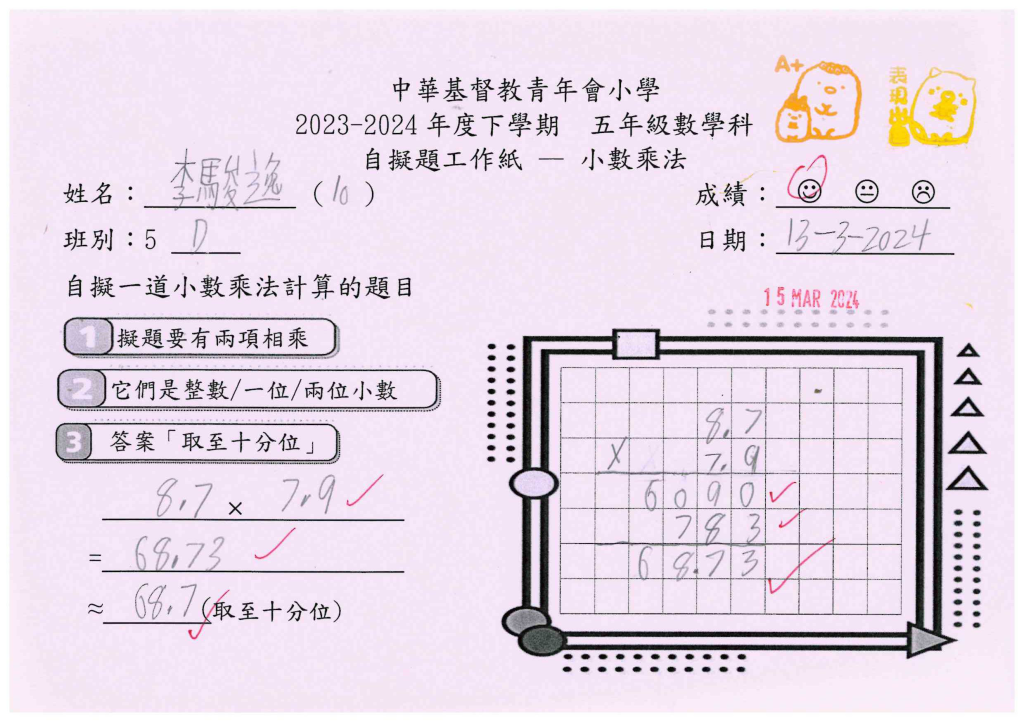 中華基督教青年會小學
2023-2024 年度下學期　五年級數學科
自擬題工作紙 — 小數乘法
A+
表現出色
姓名：李駿逸 (10)
成績：
班別：5 D
日期：13-3-2024
自擬一道小數乘法計算的題目
15 MAR 2024
1 擬題要有兩項相乘
2 它們是整數/一位/兩位小數
3 答案「取至十分位」
8.7 × 7.9
= 68.73
≈ 68.7 (取至十分位)
8.7
X 7.9
6090
783
68.73